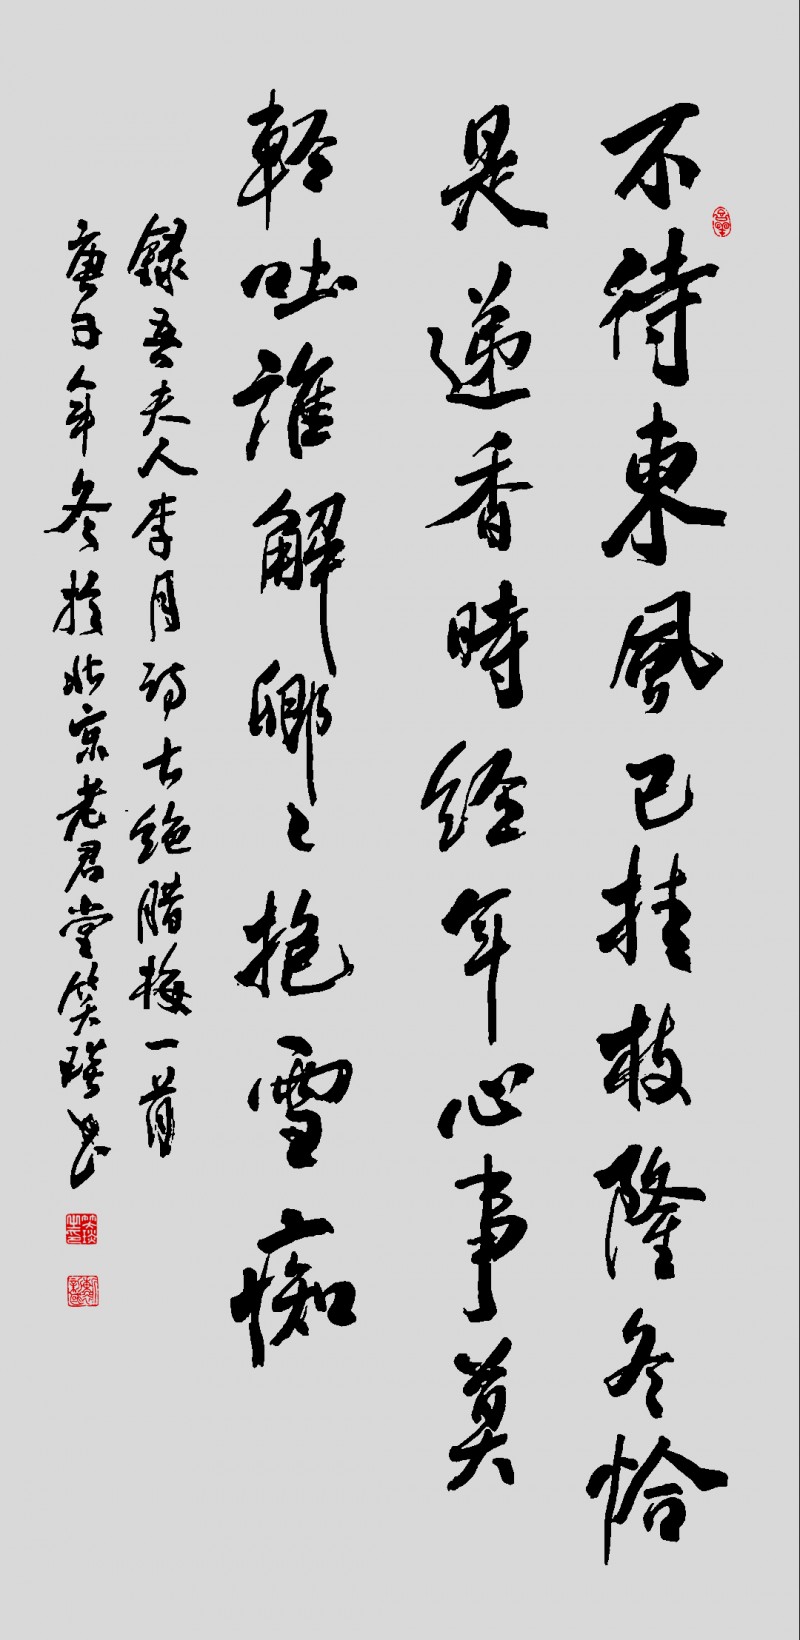 不待東風已挂枝隆冬恰
是递香時經年心事莫
輕吐誰解卿〻抱雪痴
錄吾夫人李月詩七絕腊梅一首
庚子年冬於北京老君堂笑書